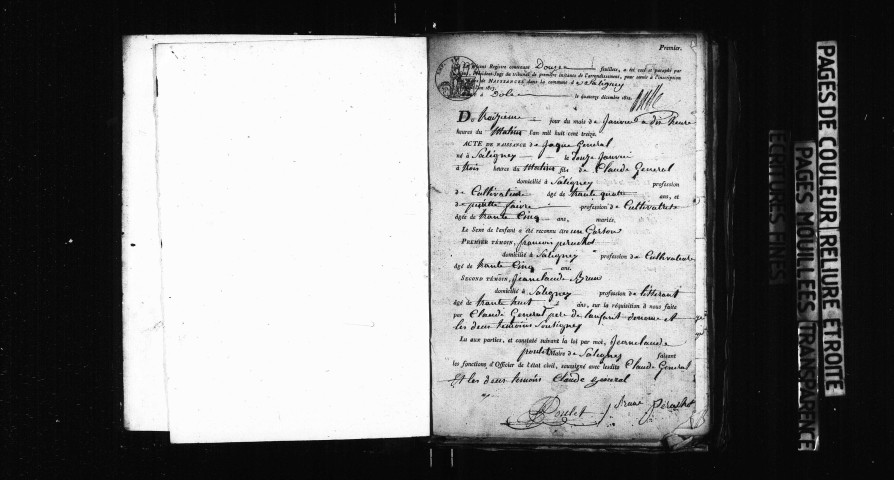 Premier.
Le présent Registre contenant Douze feuillets, a été coté et paraphé par
Président-Juge du tribunal de première instance de l'arrondissement, pour servir à l'inscription
de NAISSANCES dans la commune de Saligney
1813.
à Dole le quatorze décembre 1812.
Du traizieme jour du mois de Janvier a dix heure
heures du Matin l'an mil huit cent treize.
ACTE DE NAISSANCE de Jaque General
né à Saligney le Janvier
à trois heures du Matin fils de Claude General
domicilié à Saligney profession
de Cultivateur âgé de trante quatre ans, et
de faivre profession de Cultivatrice
âgée de trante Cinq ans, mariés.
Le Sexe de l'enfant a été reconnu être un Garson
PREMIER TÉMOIN, francois peruchot
domicilié à Saligney profession de Cultivateur
âgé de trante Cinq ans.
SECOND TÉMOIN, Jeanclaude Brun
domicilié à Saligney profession de
âgé de trante huit ans, sur la réquisition à nous faite
par Claude General pere de lanfant denome et
les deux temoins Soutigney
Lu aux parties, et constaté suivant la loi par moi, Jeanclaude
poulet Maire de Saligney faisant
les fonctions d'Officier de l'état civil, soussigné avec lesdits Claude General
Et les deux temoins Claude general
Poulet Brun peruchot
PAGES DE COULEUR RELIURE ETROITE
PAGES MOUILLEES TRANSPARENCE
ECRITURES FINES